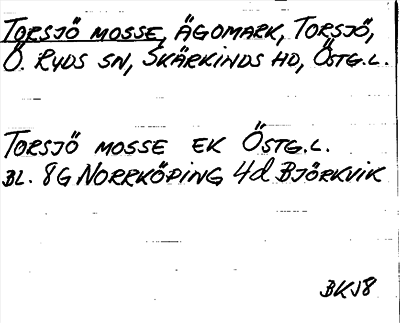 TORSJÖ MOSSE, ÄGOMARK, TORSJÖ,
Ö. RYDS SN, SKÄRKINDS HD, ÖSTG.L.
TORSJÖ MOSSE EK ÖSTG.L.
BL. 8G NORRKÖPING 4d BJÖRKVIK
BKJ8